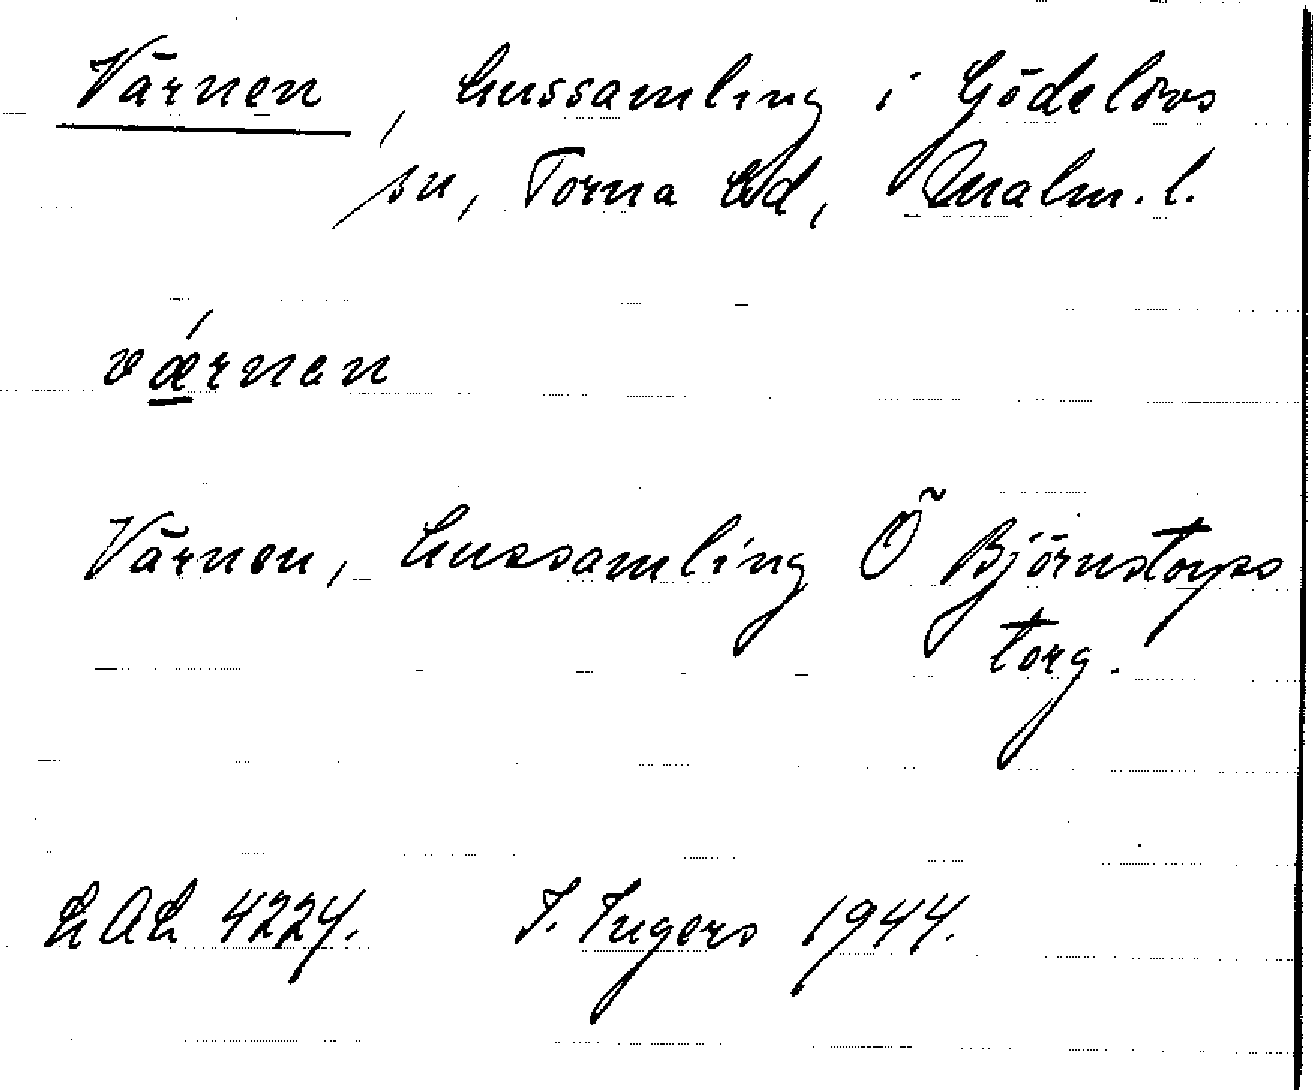 Värnen, hussamling i Gödelövs
sn, Torna hd, Malm. l.
vǽrnan
Värnen, hussamling Ö Björnstorps
torg.
LAL 4224. I. Ingers 1944.